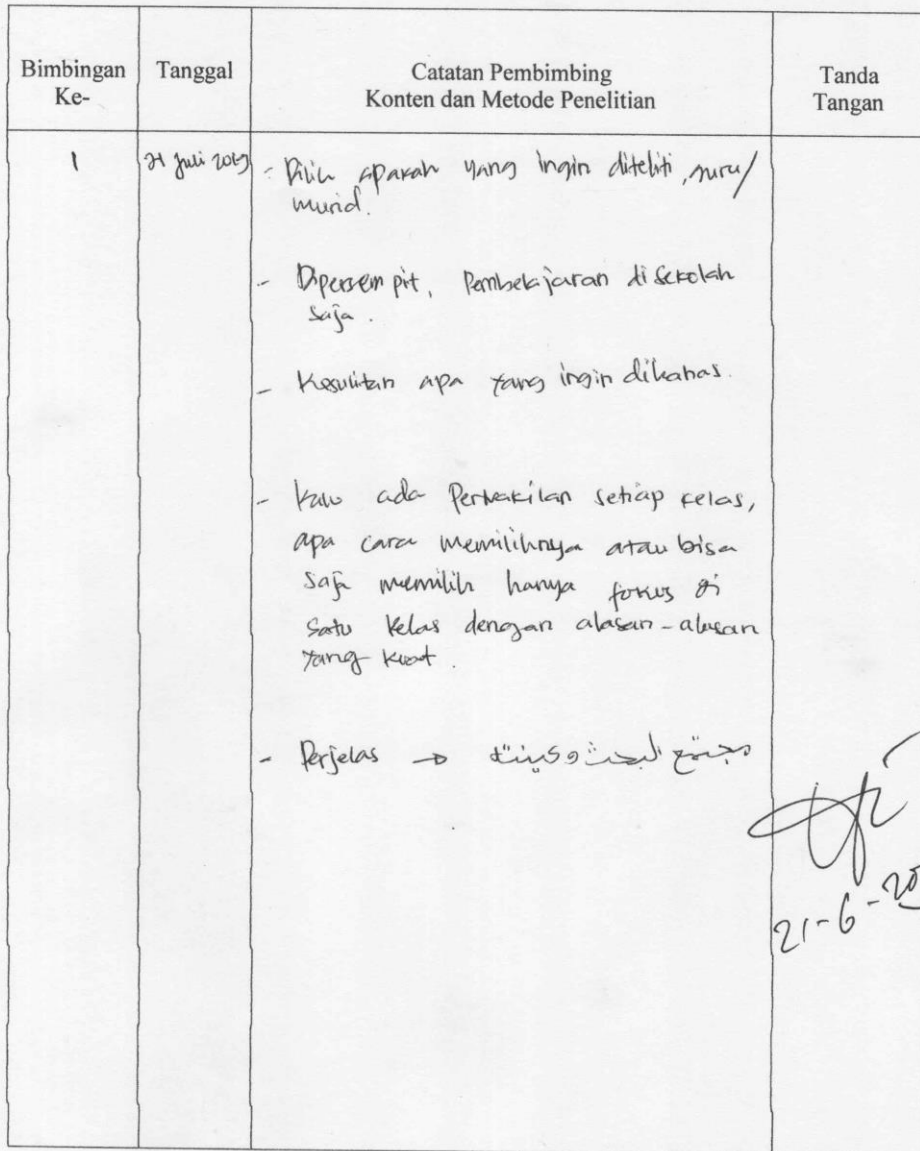 Bimbingan Ke-
Tanggal
Catatan Pembimbing
Konten dan Metode Penelitian
Tanda Tangan
1
21 Juli 2019
- Pilih apakah yang ingin diteliti, guru/
murid.
- Dipersempit, Pembelajaran di sekolah
saja.
- Kesulitan apa yang ingin dibahas.
- kalo ada Perwakilan setiap kelas,
apa cara memilihnya atau bisa
saja memilih hanya fokus di
satu kelas dengan alasan-alasan
yang kuat.
- Perjelas → مجتمع البحث وعينته
21-6-20